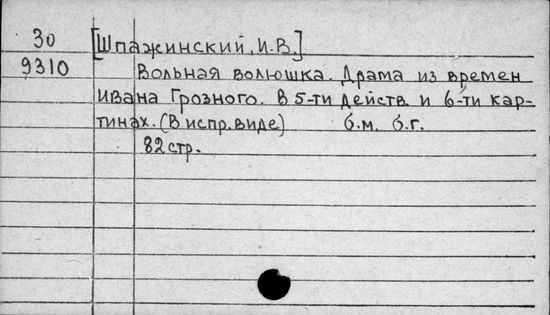 30 [Шпажинский, И.В.]
9310 Вольная волюшка. Драма из времен
Ивана Грозного. В 5-ти действ. и 6-ти кар-
тинах. (В испр. виде) б.м. б.г.
82 стр.